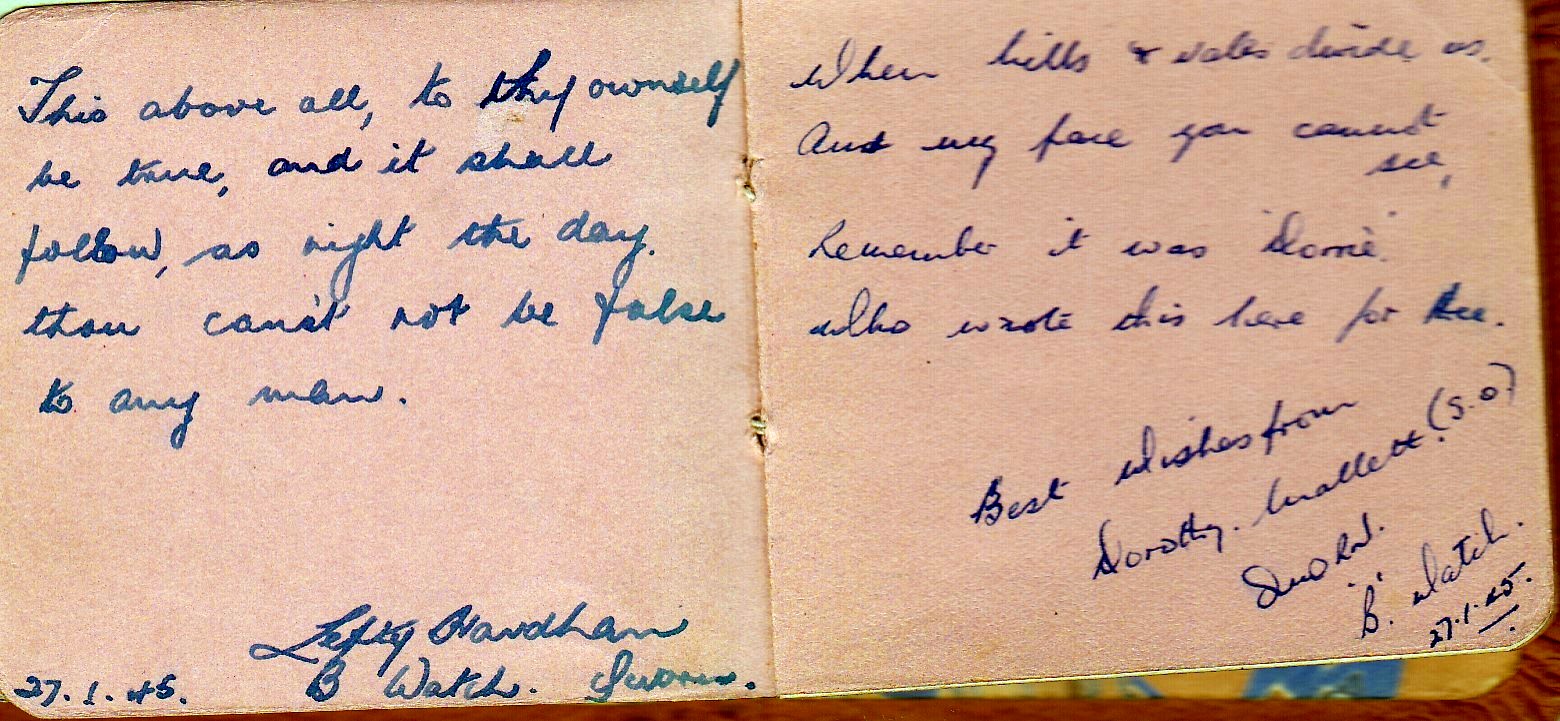 This above all, to thy ownself
be true, and it shall
follow, as night the day.
thou cans't not be false
to any man.
Lefty Hardham
27.1.45. B Watch.
When hills & vales divide us.
And my face you cannot
see,
Remember it was 'Dorrie'.
Who wrote this here for thee.
Best Wishes from
Dorothy. Mallett. (S.O)
'B' Watch.
27.1.45.